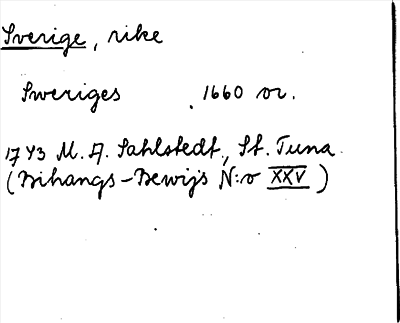 Sverige, rike
Sweriges 1660 or.
1743 M. A. Sahlstedt, St. Tuna
(Bihangs-Bewijs N:o XXV)